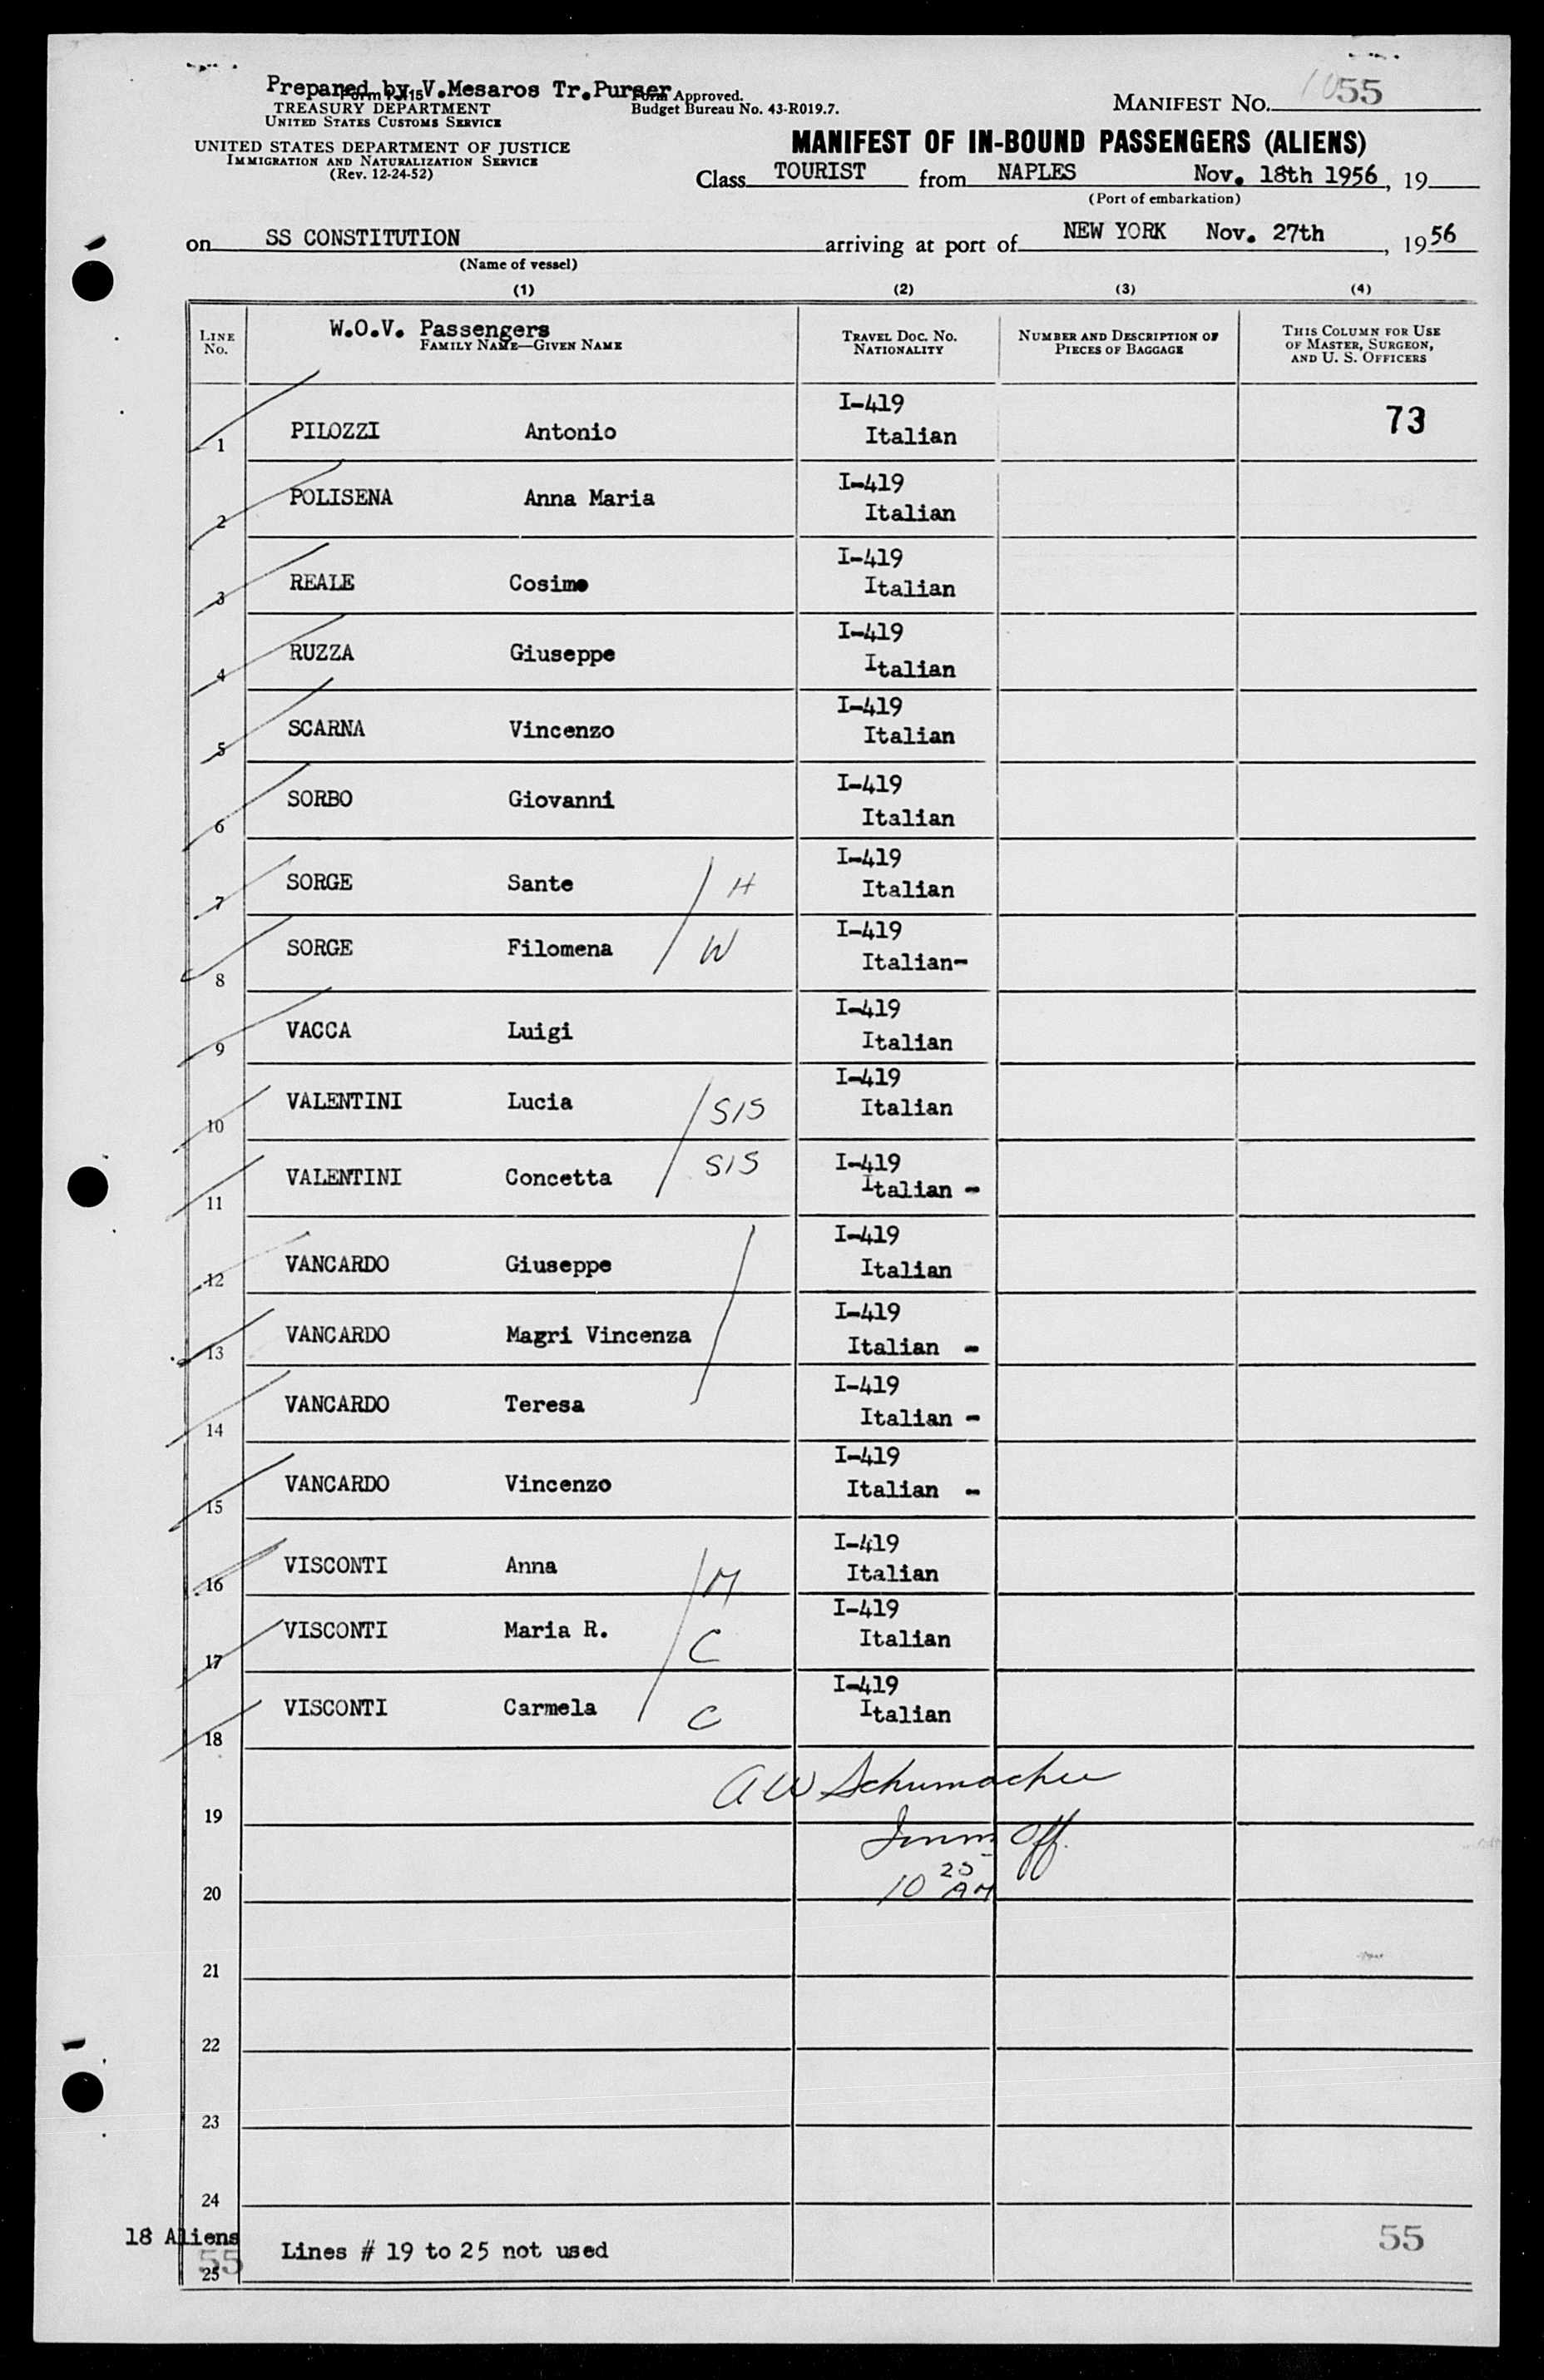 Prepared by V.Mesaros Tr.Purser
Form Approved.
TREASURY DEPARTMENT
Budget Bureau No. 43-R019.7.
UNITED STATES CUSTOMS SERVICE
MANIFEST NO. 55
UNITED STATES DEPARTMENT OF JUSTICE
IMMIGRATION AND NATURALIZATION SERVICE
(Rev. 12-24-52)
MANIFEST OF IN-BOUND PASSENGERS (ALIENS)
Class TOURIST from NAPLES Nov. 18th 1956, 19
(Port of embarkation)
on SS CONSTITUTION arriving at port of NEW YORK Nov. 27th, 1956
(Name of vessel)
(1) (2) (3) (4)
LINE NO.
W.O.V. Passengers
FAMILY NAME—GIVEN NAME
TRAVEL DOC. NO.
NATIONALITY
NUMBER AND DESCRIPTION OF
PIECES OF BAGGAGE
THIS COLUMN FOR USE
OF MASTER, SURGEON,
AND U. S. OFFICERS
1 PILOZZI Antonio I-419 Italian 73
2 POLISENA Anna Maria I-419 Italian
3 REALE Cosimo I-419 Italian
4 RUZZA Giuseppe I-419 Italian
5 SCARNA Vincenzo I-419 Italian
6 SORBO Giovanni I-419 Italian
7 SORGE Sante H I-419 Italian
8 SORGE Filomena W I-419 Italian-
9 VACCA Luigi I-419 Italian
10 VALENTINI Lucia SIS I-419 Italian
11 VALENTINI Concetta SIS I-419 Italian -
12 VANCARDO Giuseppe I-419 Italian
13 VANCARDO Magri Vincenza I-419 Italian -
14 VANCARDO Teresa I-419 Italian -
15 VANCARDO Vincenzo I-419 Italian -
16 VISCONTI Anna M I-419 Italian
17 VISCONTI Maria R. C I-419 Italian
18 VISCONTI Carmela C I-419 Italian
AW Schumacher
19
Imm Off.
20 10 25 AM
21
22
23
24
18 Aliens
55
25 Lines # 19 to 25 not used
55